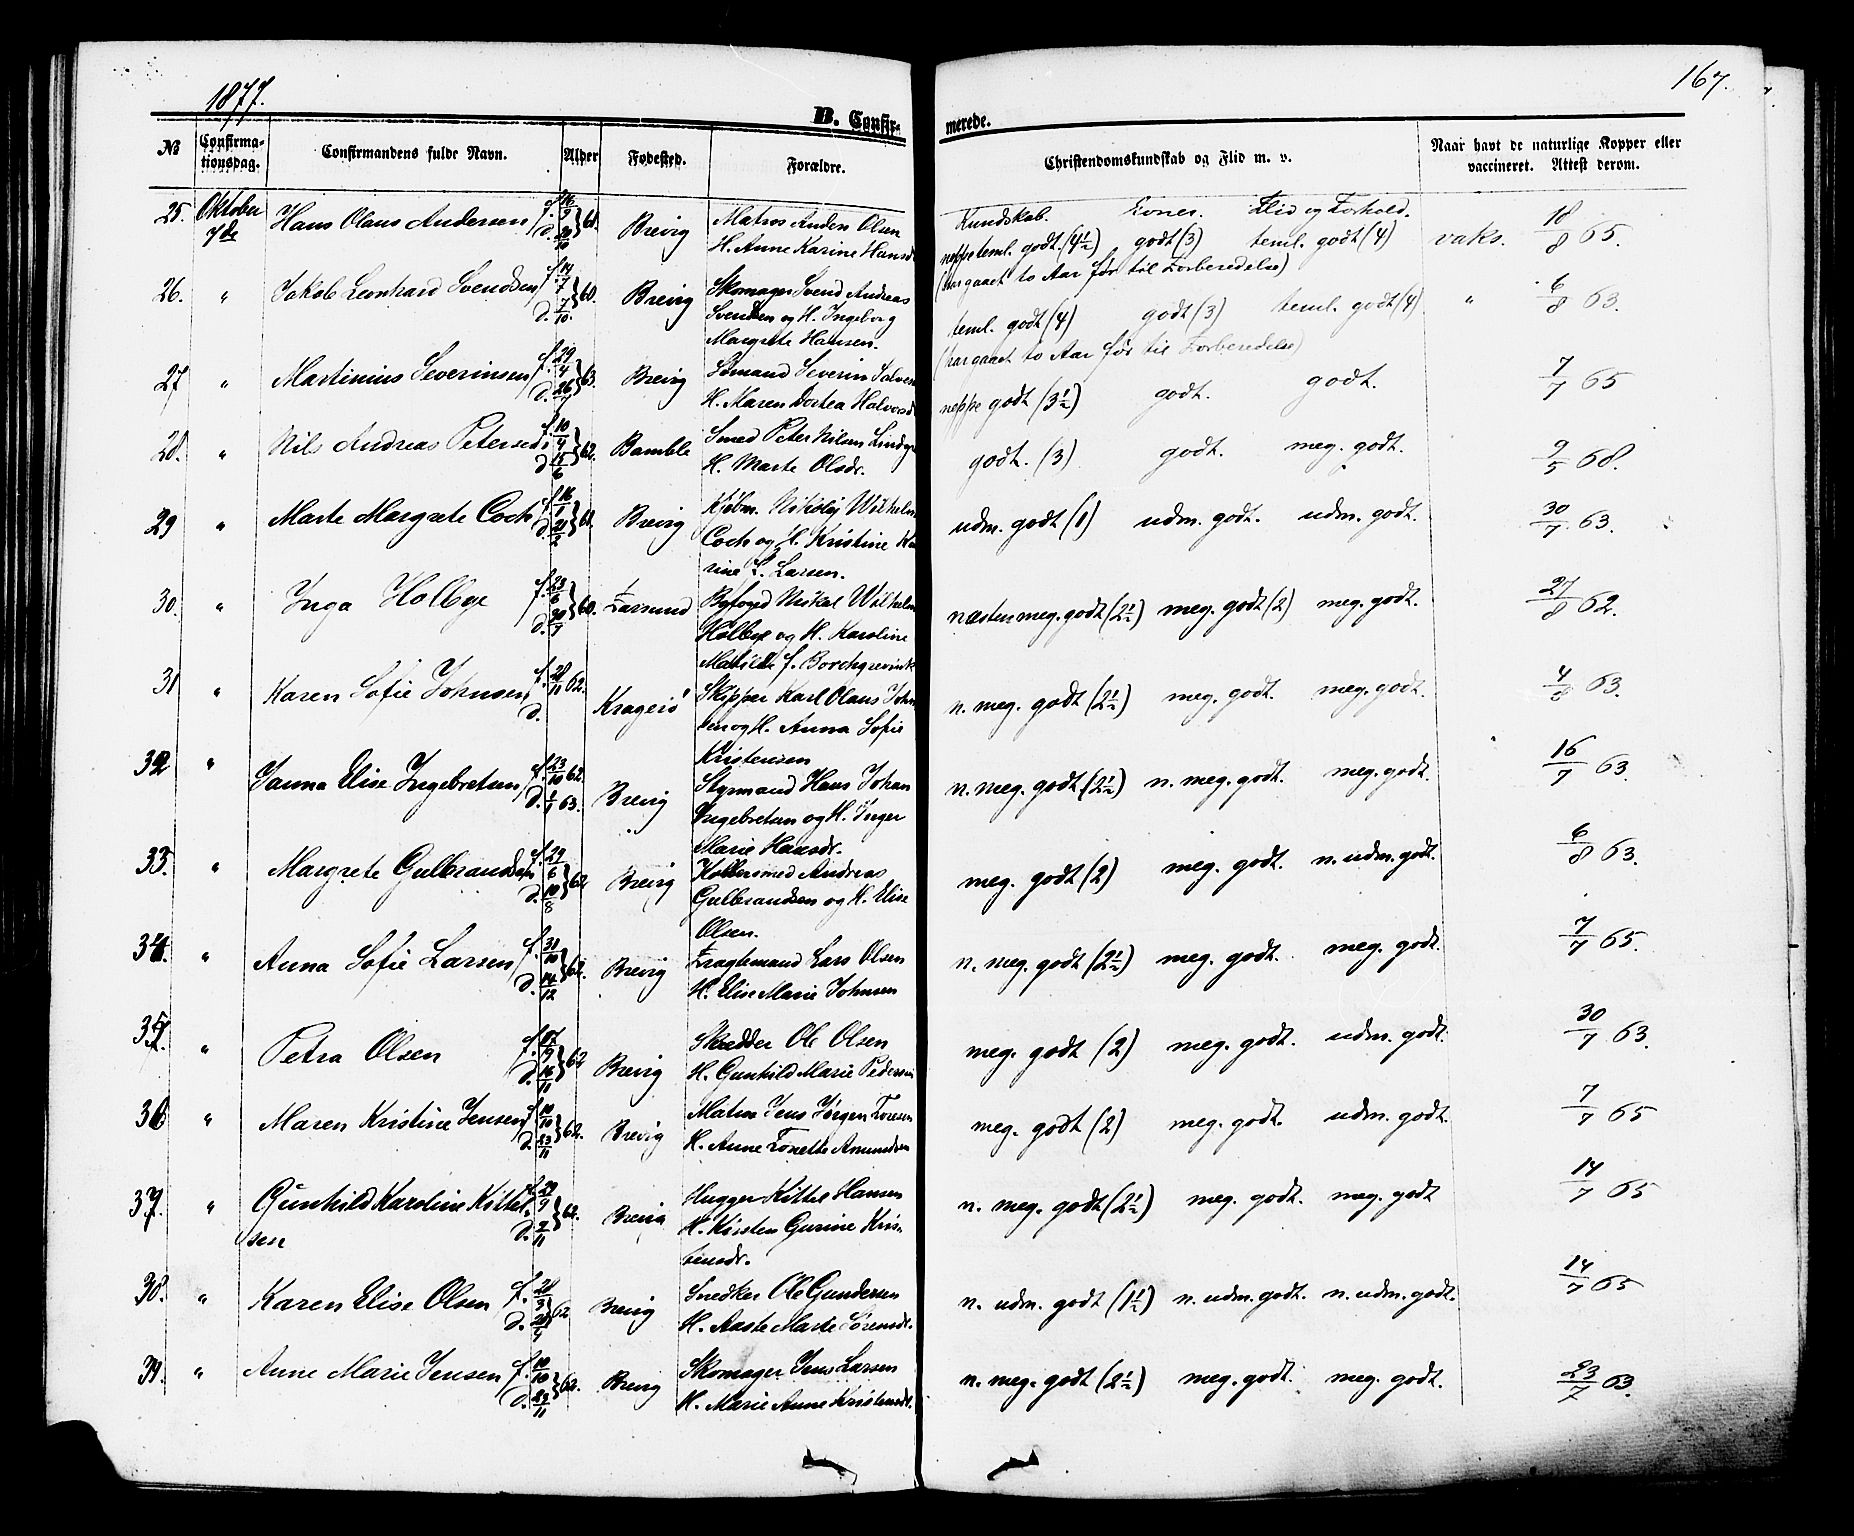 1877.
167.
B. Confir-
merede.
No
Confirma-
tionsdag.
Confirmandens fulde Navn.
Alder
Fødested.
Forældre.
Christendomskundskab og Flid m. v.
Naar havt de naturlige Kopper eller
vaccineret. Attest derom.
Kundskab. Evner. Flid og Forhold.
25. Oktober 7de Hans Olaus Andersen f. 16/9 d. 20/10 61. Brevig
Matros Anders Olsen
H. Anne Karine Hansd.
neppe teml. godt. (4½) godt (3) teml. godt (4) vaks. 18/8 65.
(har gaaet to Aar før til Forberedelse)
26. " Jakob Leonhard Svendsen f. 14/7 d. 7/10. 60. Brevig
Skomager Svend Andreas
Svendsen og H. Ingeborg
Margrete Hansen.
teml. godt (4) godt (3) teml. godt (4) " 6/8 63.
(har gaaet to Aar før til Forberedelse)
27 " Martinius Severinsen f. 29/4 d. 26/7 63. Brevig
Sømand Severin Salves
H. Maren Dortea Halvorsd
neppe godt (3½) godt. godt. 7/7 65
28. " Nils Andreas Petersen f. 10/4 d. 15/6 62. Bamble
Smed Peter Nilsen Lindgr
H. Marte Olsdr.
godt. (3) godt. meg. godt. 9/5 68.
29 " Marte Margrete Coch f. 16/1 d. 21/2 61. Brevig
Kjøbm. Nikolaj Wilhelm
Coch og H. Kristine Ka
rine L. Larsen.
udm. godt (1) udm. godt. udm. godt. 30/7 63.
30. " Inga Holbye f. 23/6 d. 30/7 60. Farsund
Byfoged Mikal Wilhelm
Holbye og H. Karoline
Matilde f. Borchgrevink
næsten meg. godt (2½) meg. godt (2) meg. godt. 27/8 62.
31 " Karen Sofie Johnsen f. 28/11 62. d. Kragerø
Skipper Karl Olaus John
sen og H. Anna Sofie
Kristensen
n. meg. godt (2½) meg. godt. meg. godt. 4/8 63.
32 " Janna Elise Ingebretsen f. 23/10 62. d. 1/1 63. Brevig
Styrmand Hans Johan
Ingebretsen og H. Inger
Marie Hansdr.
n. meg. godt (2½) n. meg. godt. meg. godt. 16/7 63.
33. " Margrete Gulbrandsen f. 29/6 d. 10/8 62 Brevig
Kobbersmed Andreas
Gulbrandsen og H. Elise
Olsen.
meg. godt (2) meg. godt. n. udm. godt. 6/8 63.
34. " Anna Sofie Larsen f. 31/10 d. 14/12 62. Brevig
Fragtemand Lars Olsen
H. Elise Marie Johnsen
n. meg. godt (2½) meg. godt. meg. godt. 7/7 65.
35. " Petra Olsen f. 07/9 d. 16/11 62 Brevig
Skrædder Ole Olsen
H. Gunhild Marie Pedersen
meg. godt (2) meg. godt. udm. godt. 30/7 63.
36 " Maren Kristine Jensen f. 10/10 d. 23/11 62. Brevig
Matros Jens Jørgen Toresen
H. Anne Tonette Amundsen
meg. godt (2) meg. godt. udm. godt. 7/7 65
37. " Gunhild Karoline Kittel- f. 22/9 d. 2/11 62. Brevig
sen
Hugger Kittel Hansen
H. Kirsten Gurine Kris-
tensdr.
n. meg. godt (2½) meg. godt. meg. godt 14/7 65
38. " Karen Elise Olsen f. 28/3 d. 20/4 62 Brevig
Snedker Ole Gundersen
H. Aaste Marte Sørensdr.
n. udm. godt (1½) n. udm. godt. n. udm. godt. 14/7 65
39. " Anne Marie Jensen f. 10/10 d. 23/11 62. Brevig
Skomager Jens Larsen
H. Marie Anne Kristensdr.
n. meg. godt (2½) meg. godt. meg. godt. 23/7 63.